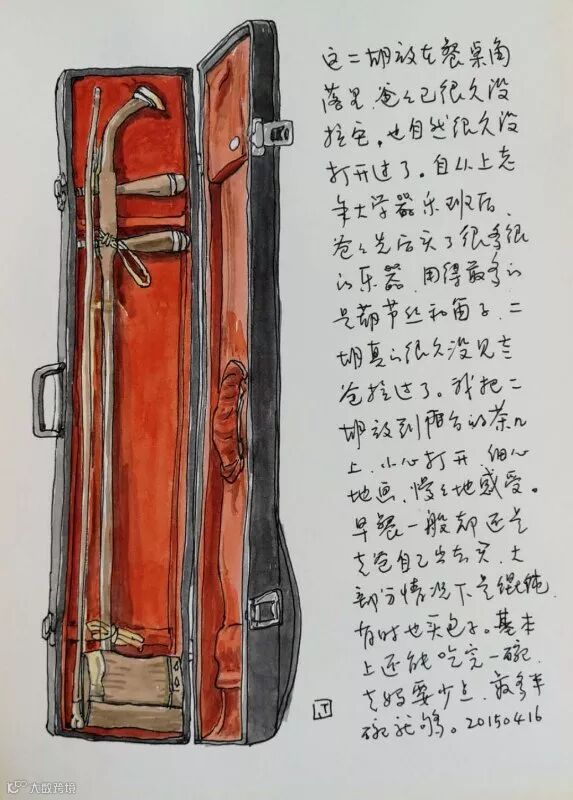 这二胡放在餐桌角
落里，爸爸已很久没
拉它，也自然很久没
打开过了。自从上老
年大学器乐班后，
爸爸先后买了很多很
的乐器，用得最多的
是葫芦丝和笛子，二
胡真的很久没见老
爸拉过了。我把二
胡放到阳台的茶几
上，小心打开，细心
地画，慢慢地感受。
早餐一般都还是
老爸自己出去买，大
部分情况下是馄饨，
有时也买包子。基本
上还能吃完一碗，
老妈要少点，最多半
碗就够。20150416
LT
大数跨境